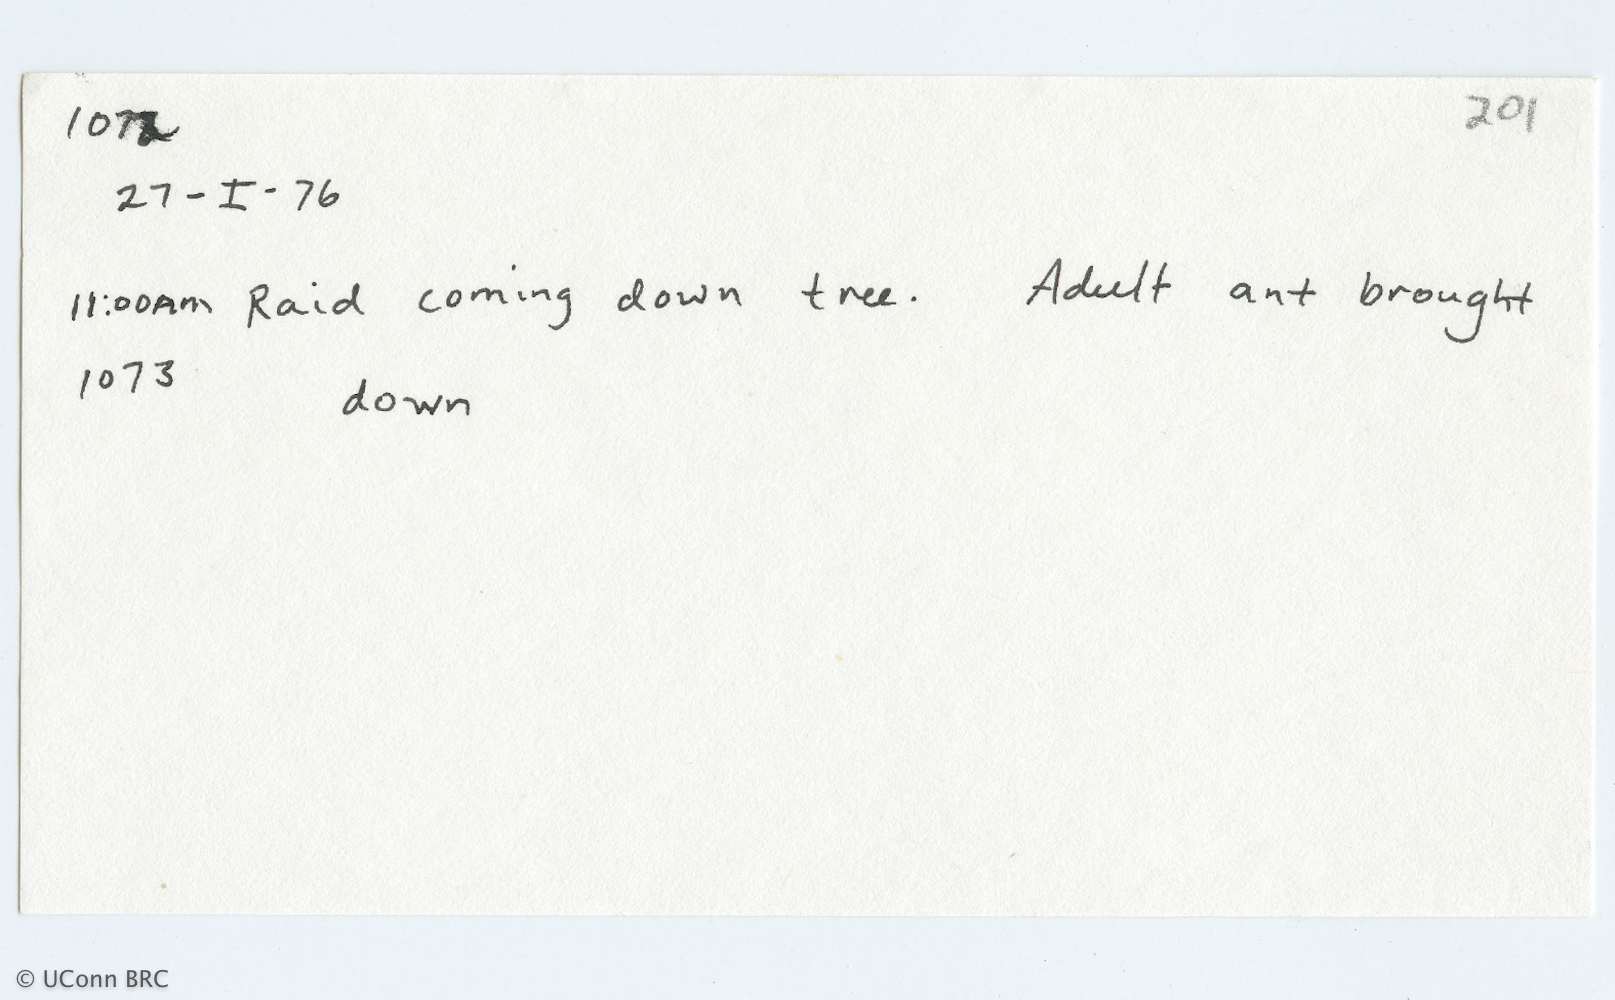 1072
201
27-I-76
11:00AM Raid coming down tree. Adult ant brought
1073
down
© UConn BRC